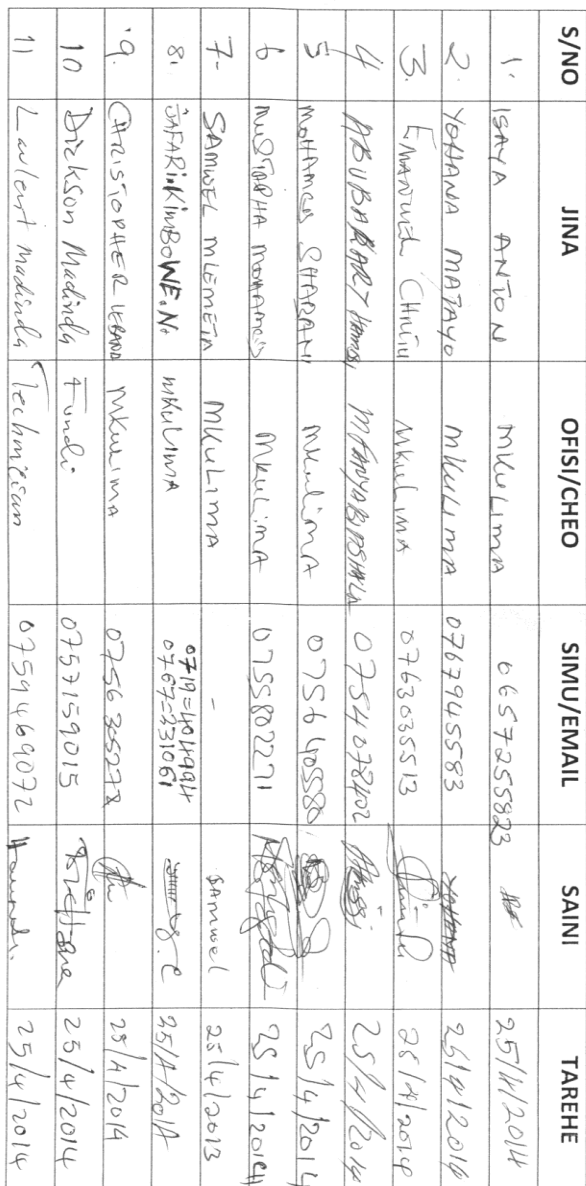 S/NO JINA OFISI/CHEO SIMU/EMAIL SAINI TAREHE
1. ISAYA ANTON MKULIMA 0657255823 25/4/2014
2. YOHANA MATAYO MKULIMA 0767945583 YOHANA 25/4/2014
3. EMANUEL CHILIU MKULIMA 0763035513 25/4/2014
4 ABUBAKARY HAMSI MFANYABIASHARA 0754078402 25/4/2014
5 MOHAMED SHABANI MKULIMA 0756405580 25/4/2014
6 MUSTAPHA MOHAMED MKULIMA 0755802271 25/4/2014
7- SAMWEL MLEMETA MKULIMA - SAMWEL 25/4/2013
8. JAFARI.KIMBOWE.N. MKULIMA 0719=404994
0767=231061 25/4/2014
9. CHRISTOPHER MKULIMA 0756305278 25/4/2014
10 Dickson Madinda Fundi 0757159015 25/4/2014
11 Laulent Madinda Technician 0759469072 25/4/2014